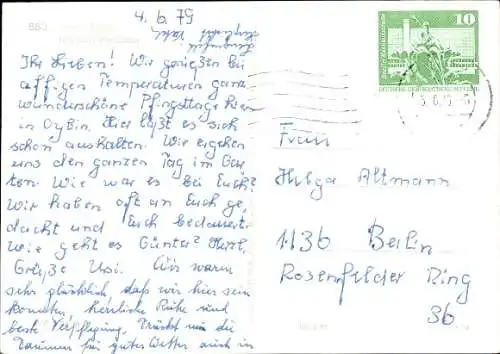 4. 6. 79
Ihr Lieben! Wir genießen bei
affigen Temperaturen ganz
wunderschöne Pfingsttage hier
in Oybin. Hier läßt es sich
schon aushalten. Wir ergehen
uns den ganzen Tag im Gar
ten. Wie war es bei Euch?
Wir haben oft an Euch ge
dacht und Euch bedauert.
Wie geht es Günter? Herzl.
Grüße Usi. Wir waren
sehr glücklich, daß wir hier sein
konnten, herrliche Ruhe und
beste Verpflegung. Drückt uns die
Daumen für gutes Wetter auch in
10
Frau
Helga Altmann
1136 Berlin
Rosenfelder Ring
36